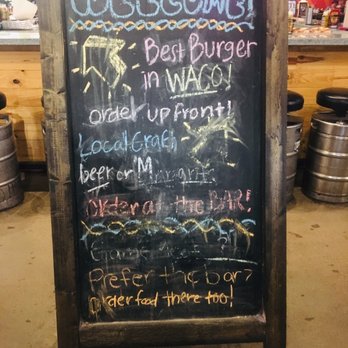 Best Burger
in WACO!
order up front!
Local Craft
beer on
Order at the BAR!
Prefer the bar?
order food there too!